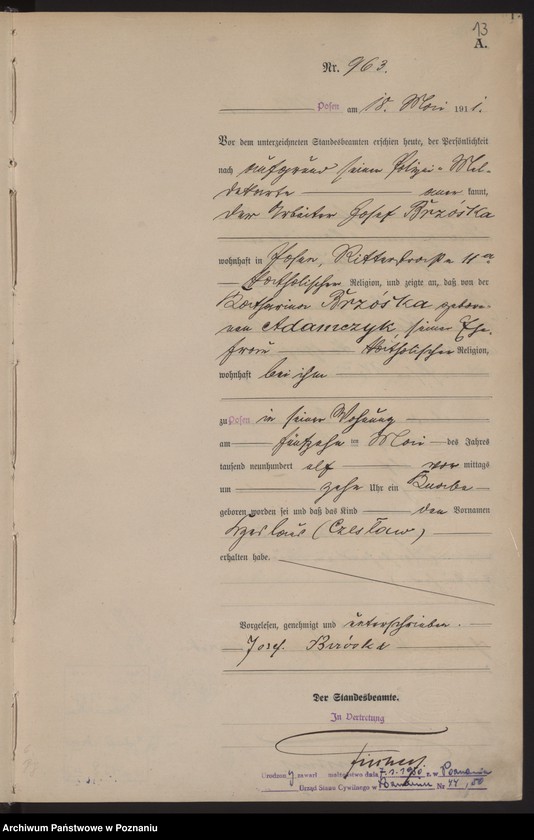 13
A.
Nr. 963.
Posen am 18. Mai 1911.
Vor dem unterzeichneten Standesbeamten erschien heute, der Persönlichkeit
nach aufgrund seiner Polizei-Mel-
dekarte anerkannt,
der Arbeiter Josef Brzóska
wohnhaft in Posen, Ritterstraße 11a
katholischer Religion, und zeigte an, daß von der
Katharina Brzóska gebore-
nen Adamczyk, seiner Ehe-
frau katholischer Religion,
wohnhaft bei ihm
zu Posen in seiner Wohnung
am fünfzehnten Mai des Jahres
tausend neunhundert elf vor mittags
um zehn Uhr ein Knabe
geboren worden sei und daß das Kind den Vornamen
Czeslaus (Czesław)
erhalten habe.
Vorgelesen, genehmigt und unterschrieben.
Josef Brzóska
Der Standesbeamte.
In Vertretung
Urodzony zawarł małżeństwo dnia 7.1.1950 r. w Poznaniu
Urząd Stanu Cywilnego w Poznaniu Nr 44/50
Archiwum Państwowe w Poznaniu